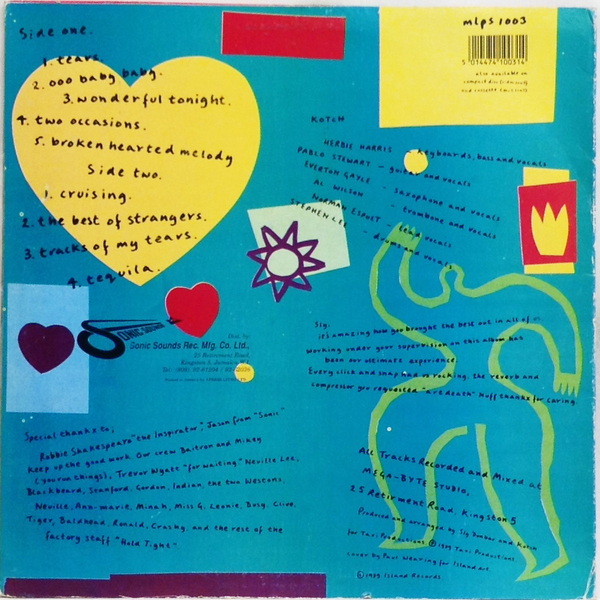 Side one.
1. tears.
2. ooo baby baby.
3. wonderful tonight.
4. two occasions.
5. broken hearted melody
Side two.
1. cruising.
2. the best of strangers.
3. tracks of my tears.
4. tequila.
mlps 1003
5 014474 100314
also available on
compact disc
and cassette
KOTCH
HERBIE HARRIS - keyboards, bass and vocals
PABLO STEWART - guitar and vocals
EVERTON GAYLE - saxophone and vocals
AL WILSON - trombone and vocals
NORMAN ESPUET - lead vocals
STEPHEN LEE - drums and vocals
SONIC SOUNDS
Dist. by
Sonic Sounds Rec. Mfg. Co. Ltd.,
25 Retirement Road,
Kingston 5, Jamaica, W.I.
Sly,
it's amazing how you brought the best out in all of us.
Working under your supervision on this album has
been our ultimate experience.
Every click and snap had us rocking. the reverb and
compressor you requested "art death" Nuff thanks for caring.
Special thanks to;
Robbie Shakespeare "the Inspirator", Jason from "Sonic"
keep up the good work. Our crew Baitron and Mikey
(you run things), Trevor Wyatt "for waiting." Neville Lee,
Blackbeard, Stanford, Gordon, Indian, the two Westons,
Neville, Ann-marie, Minah, Miss G. Leonie, Busy, Clive,
Tiger, Baldhead, Ronald, Crashy, and the rest of the
factory staff "Hold Tight"
All Tracks Recorded and Mixed at
MEGA-BYTE STUDIO,
25 Retirement Road, Kingston 5
Produced and arranged by Sly Dunbar and Kotch
for Taxi Productions ©1989 Taxi Productions.
cover by Paul Wearing for Island art
©1989 Island Records.